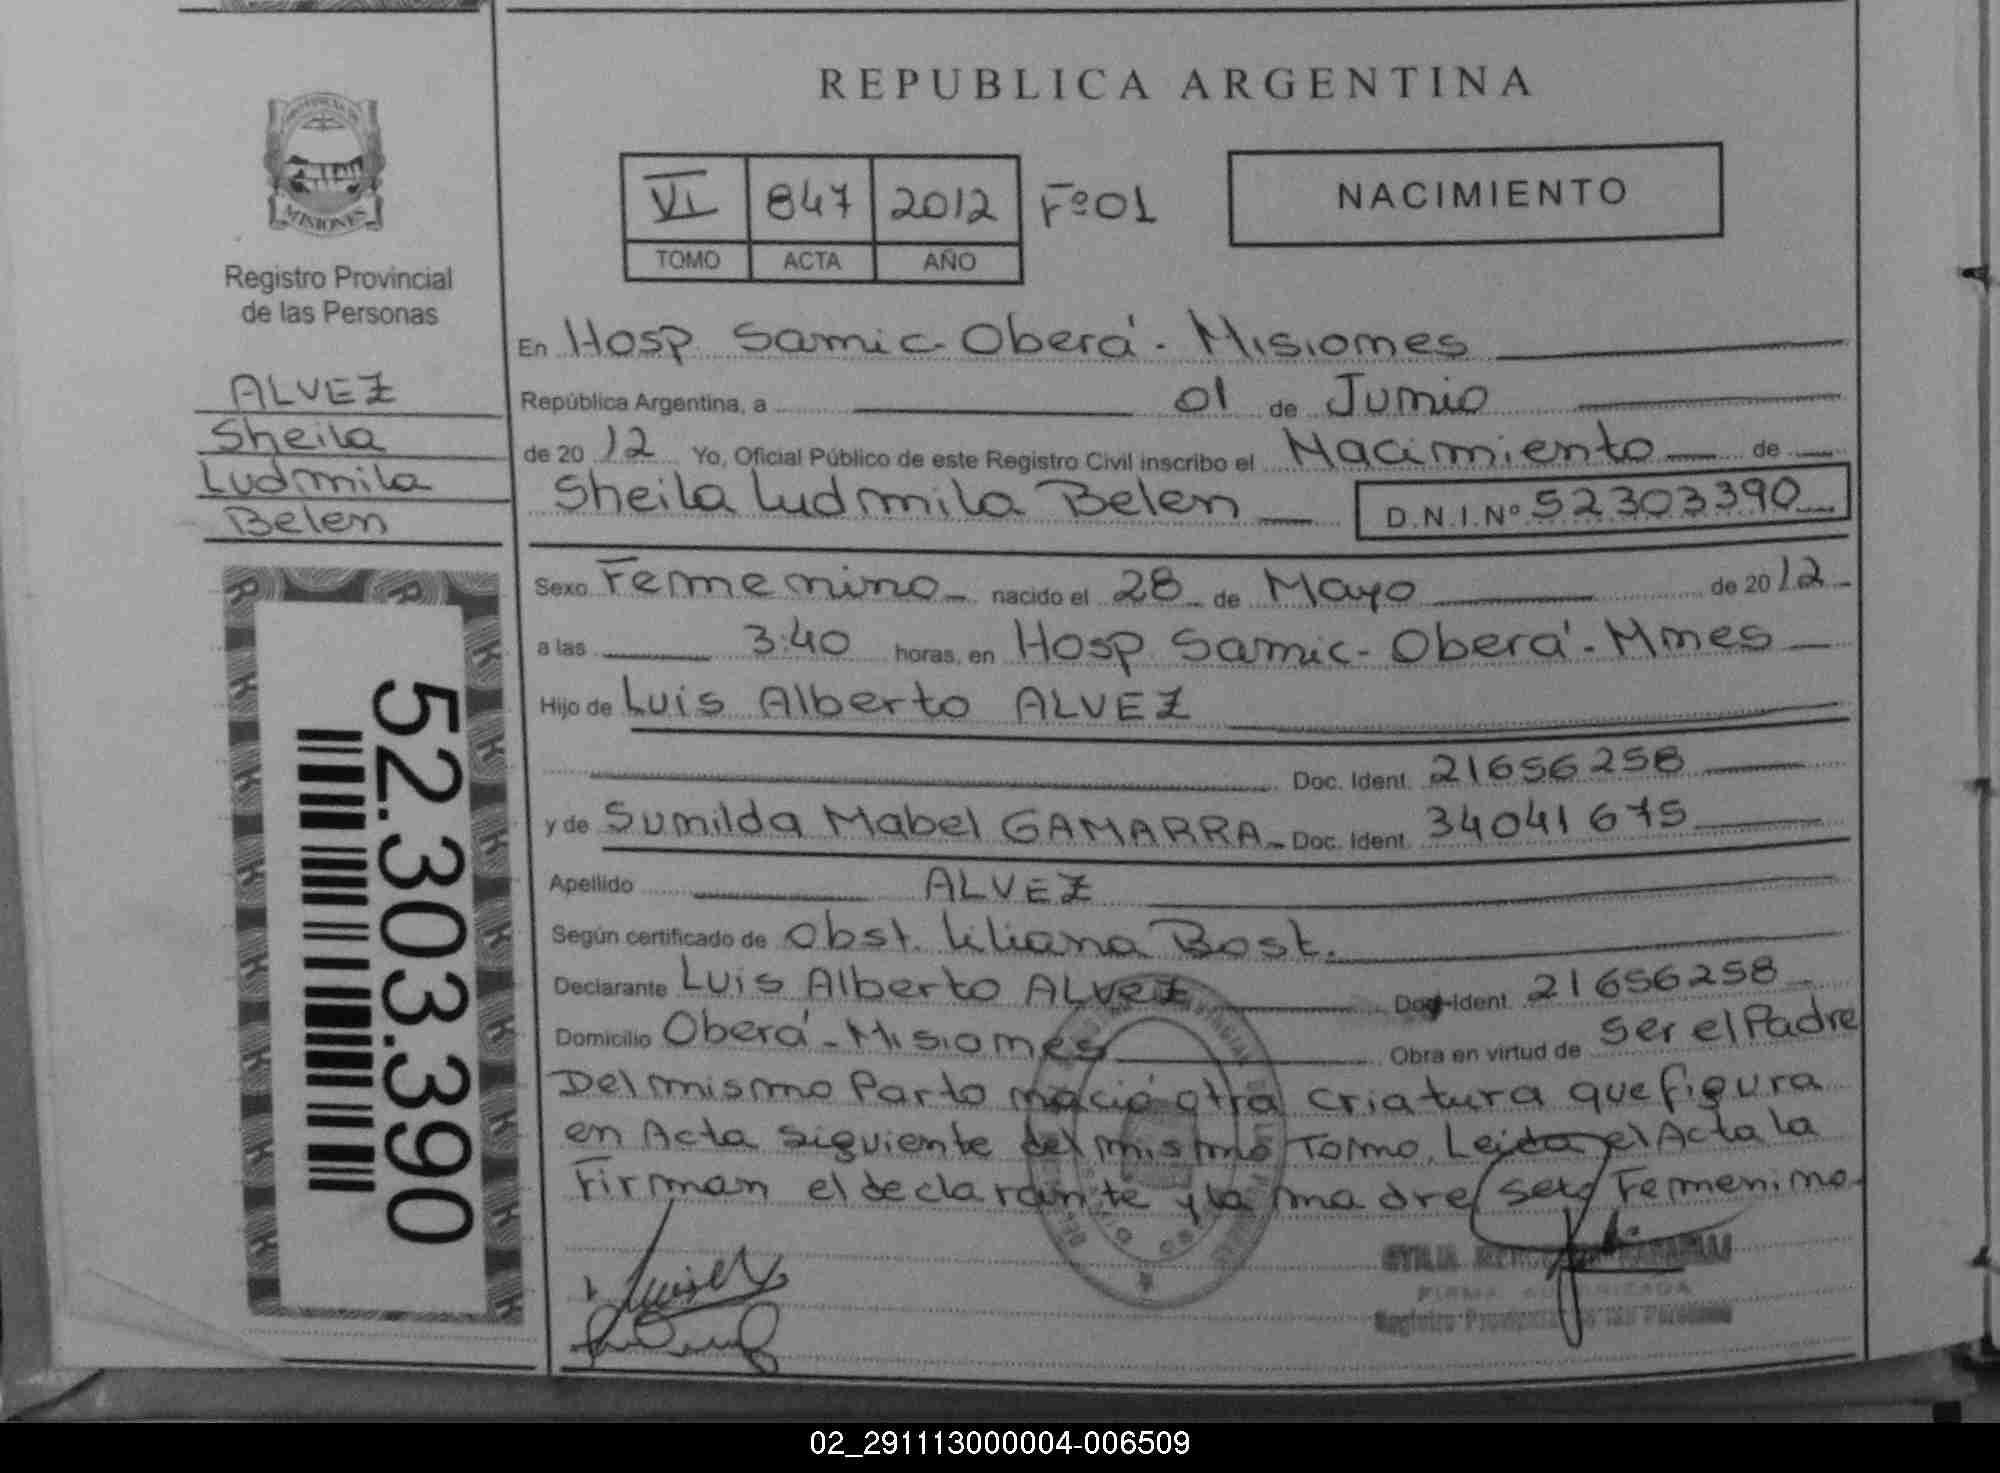 REPUBLICA ARGENTINA
MISIONES
Registro Provincial
de las Personas
ALVEZ
Sheila
Ludmila
Belen
52.303.390
VI 847 2012 Fº01
TOMO ACTA AÑO
NACIMIENTO
En Hosp. Samic-Oberá-Misiones
República Argentina, a 01 de Junio
de 2012 Yo, Oficial Público de este Registro Civil inscribo el Nacimiento de
Sheila Ludmila Belen D.N.I.Nº 52303390
Sexo Femenino nacido el 28 de Mayo de 2012
a las 3:40 horas, en Hosp. Samic-Oberá-Mnes
Hijo de Luis Alberto ALVEZ
Doc. Ident. 21656258
y de Sunilda Mabel GAMARRA Doc. Ident. 34041675
Apellido ALVEZ
Según certificado de Obst. Liliana Bost.
Declarante Luis Alberto ALVEZ Doc. Ident. 21656258
Domicilio Oberá-Misiones Obra en virtud de Ser el Padre
Del mismo Parto nació otra criatura que figura
en Acta siguiente del mismo Tomo. Leida el Acta la
Firman el declarante y la madre Sexo Femenino
FIRMA AUTORIZADA
Registro Provincial de las Personas
02_291113000004-006509